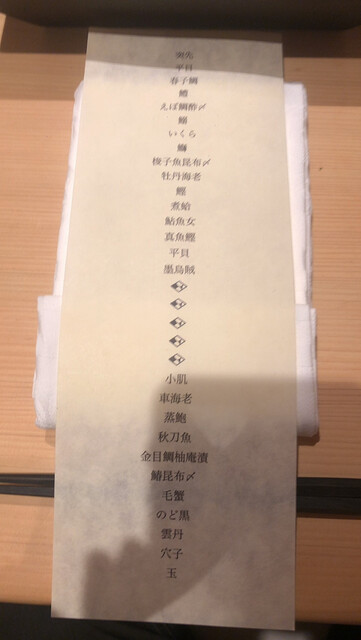 平貝
春子鯛
鱧
えぼ鯛酢〆
鰯
いくら
鰤
梭子魚昆布〆
牡丹海老
鰹
煮蛤
鮎魚女
真魚鰹
平貝
墨烏賊
小肌
車海老
蒸鮑
秋刀魚
金目鯛柚庵漬
鰆昆布〆
毛蟹
のど黒
雲丹
穴子
玉